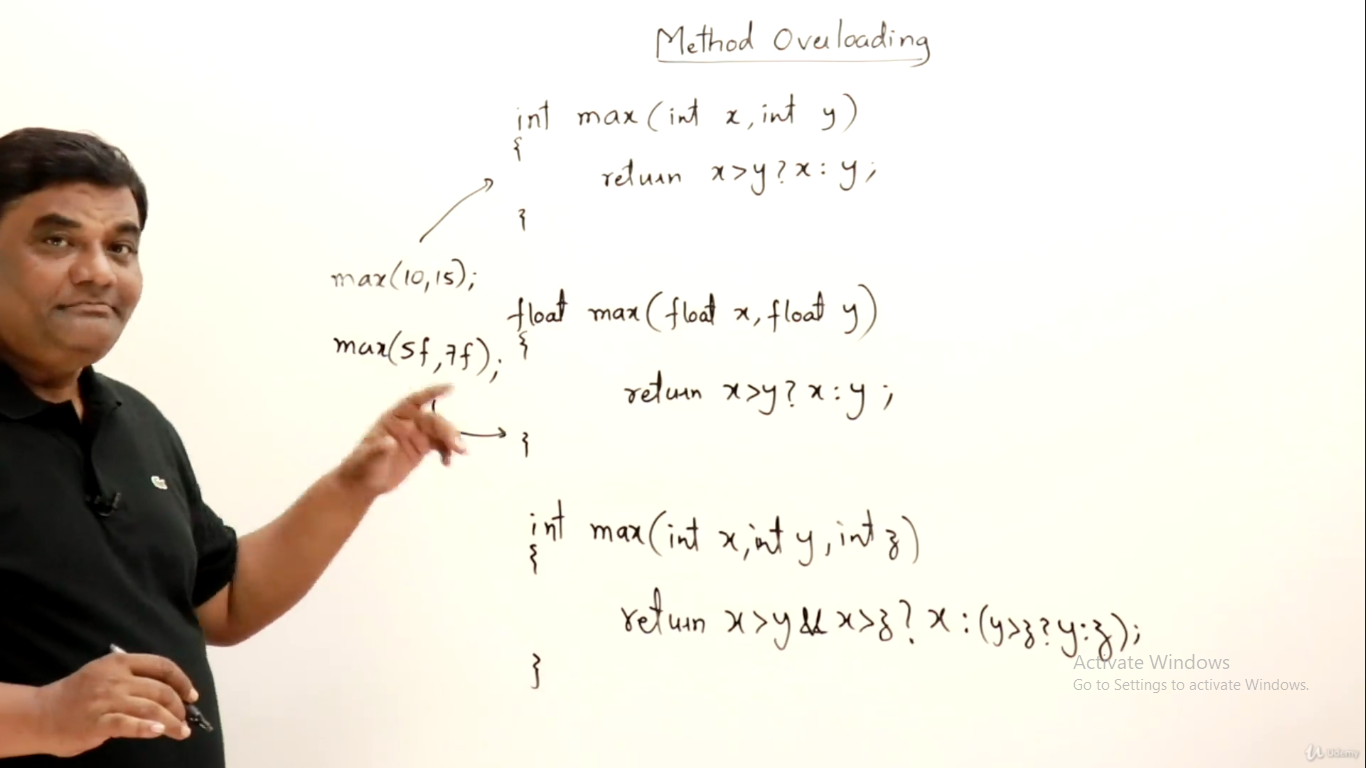 Method Overloading
int max(int x, int y)
{
return x>y?x:y;
}
max(10,15);
max(5f,7f);
float max(float x, float y)
{
return x>y?x:y;
}
int max(int x,int y, int z)
{
return x>y&&x>z?x:(y>z?y:z);
}
Activate Windows
Go to Settings to activate Windows.
Udemy